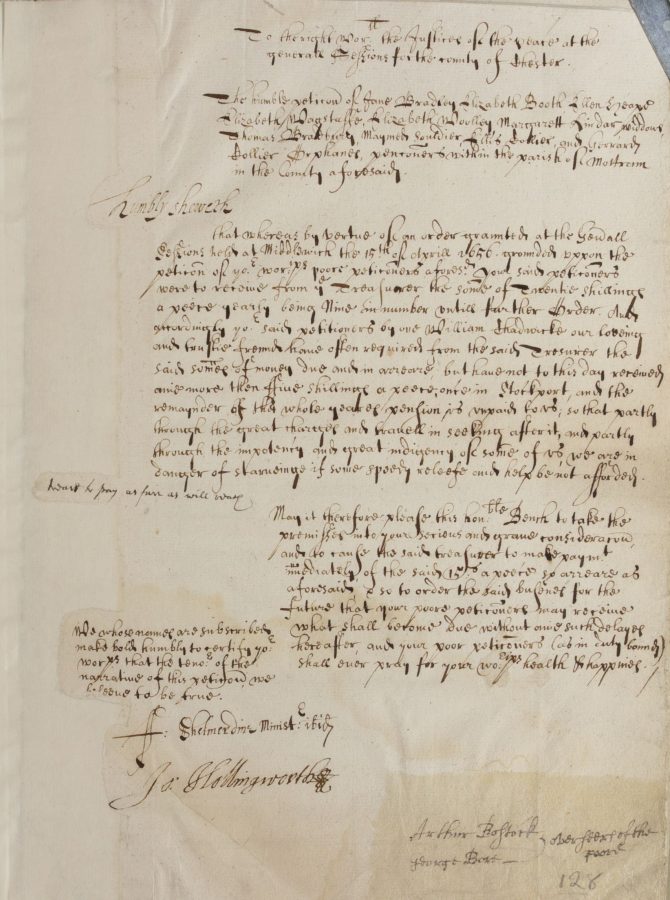 To the right Wor:ll the Justices of the peace at the
generall Sessions for the county of Chester.
The humble peticon of Jane Bradley Elizabeth Booth Ellen Heape
Elizabeth Wagstaffe, Elizabeth Wolley Margarett Lindar widdows,
Thomas Maymed Souldier Ellis Collier, and Gerrard
Collier Orphanes, pencõners within the parish of Mottram
in the County aforesaid.
Humbly sheweth
that whereas by vertue of an order graunted at the Genall
Sessions held at Middlewich the 15th of Aprill 1656. grounded uppon the
peticon of yor. worpps poore peticoners aforesd. your said peticoners
were to receive from ye Treasurer the some of Twentie shillings
a peece yearly being Nine in number untill further Order. And
accordingly yor. said petitioners by one William Chadwicke our loveing
and trustie freind have often required from the said Tresurer the
said somes of money due and in arreare, but have not to this day received
anie more then ffive shillings a peece, once in Stockport, and the
remainder of the whole yeares pension is unpaid to us, so that partly
through the great charges and travell in seeking after it, and partly
through the impotency and great indigency of some of us we are in
danger of starveinge if some speedy releefe and help be not afforded.
to pay as farr as will
May it therefore please this hon:ble Bench to take the
premisses into your serious and grave consideracon,
and to cause the said treasurer to make paymt
imediately of the said 15s a peece so arreare as
aforesaid, & so to order the said busines for the
future that your poore peticoners may receive
what shall become due without anie such delayes
hereafter, and your poor peticoners (as in duty bound)
shall ever pray for your worpps health & happines.
We whose names are subscribed
make bolde humbly to certify yor.
worpps that the tenor of the
narrative of this peticon we
beleeve to be true.
ff: Shelmerdine Minist:
Jo: Hollingworth
Arthur Bostock
George Bore
overseers of the
poore
128